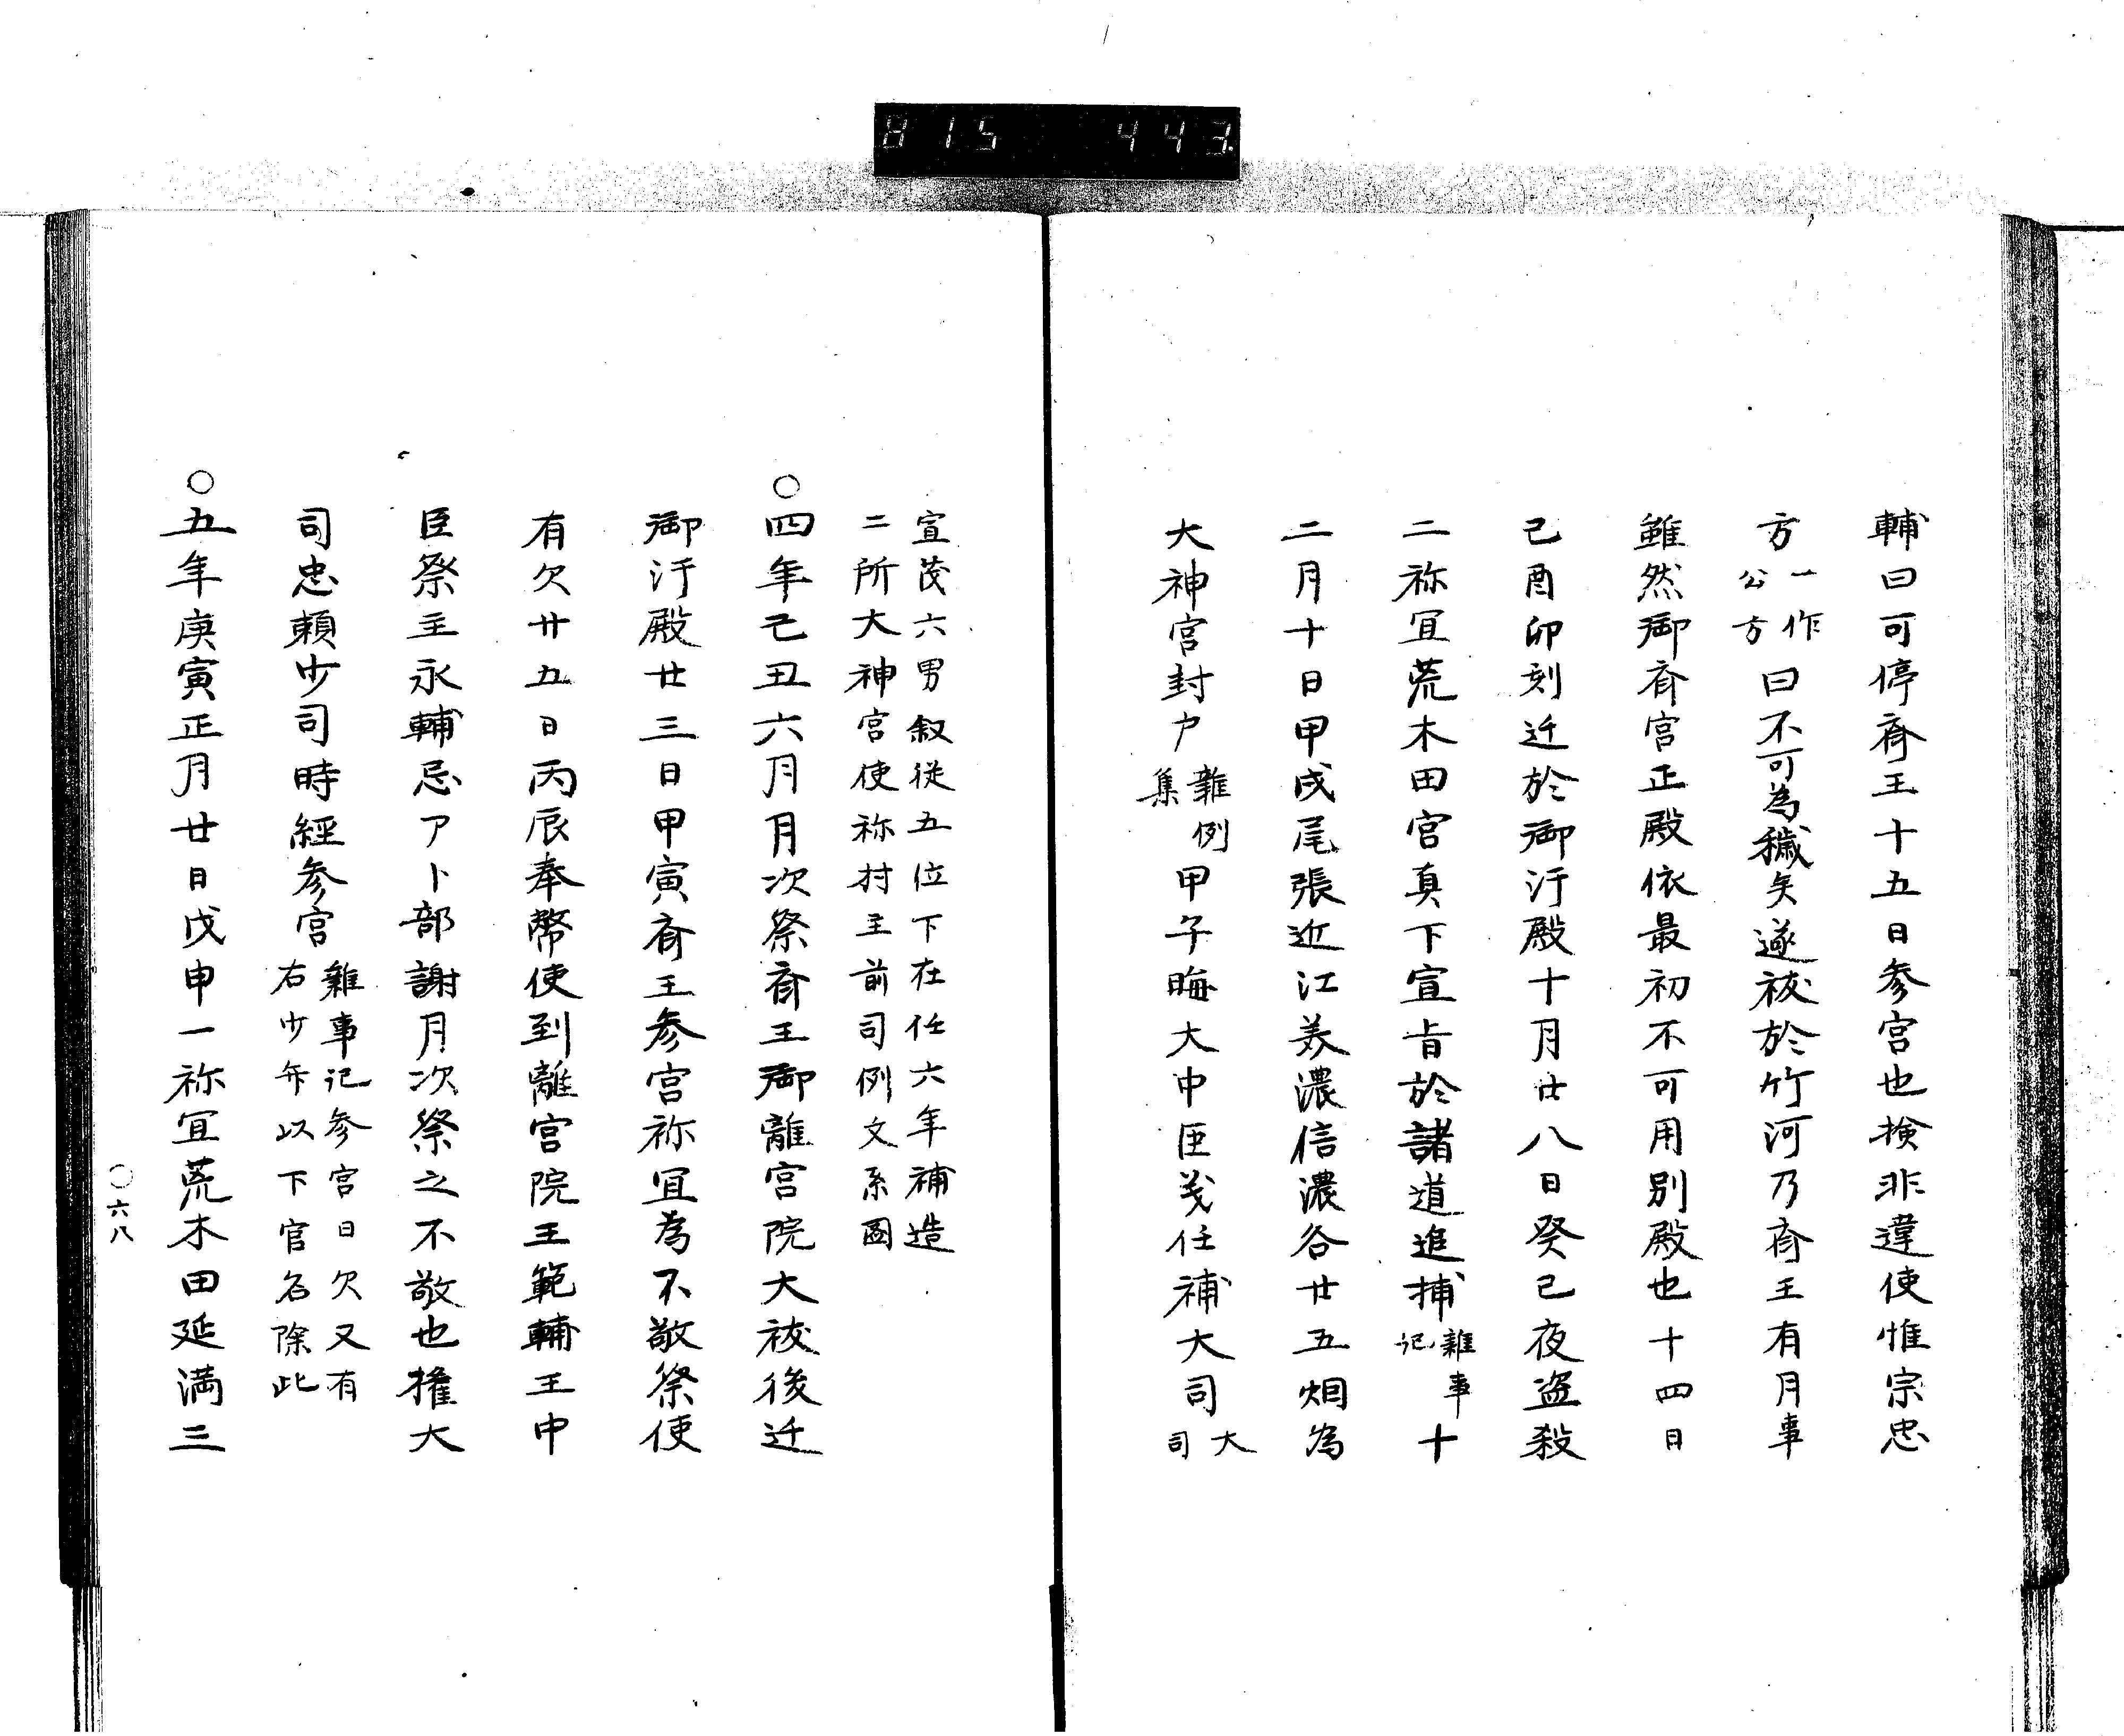 815 443.
輔曰可停斎王十五日参宮也検非違使惟宗忠
方一作公方曰不可為穢矣遂祓於竹河乃斎王有月事
雖然御斎宮正殿依最初不可用別殿也十四日
己酉卯刻迁於御汙殿十月廿八日癸巳夜盗殺
二祢冝荒木田宮真下宣旨於諸道追捕雜事記十
二月十日甲戌尾張近江美濃信濃各廿五烟為
大神宮封户雜例集甲子晦大中臣茂任補大司大司
宣茂六男叙従五位下在任六年補造
二所大神宮使祢村主前司例文系圖
○四年己丑六月月次祭斎王御離宮院大祓後迁
御汙殿廿三日甲寅斎王参宮祢冝為不敬祭使
有欠廿五日丙辰奉幣使到離宮院王範輔王中
臣祭主永輔忌ア卜部謝月次祭之不敬也權大
司忠頼少司時經参宮雜事記参宮日欠又有右少弁以下官名除此
○五年庚寅正月廿日戊申一祢冝荒木田延満三
○六八